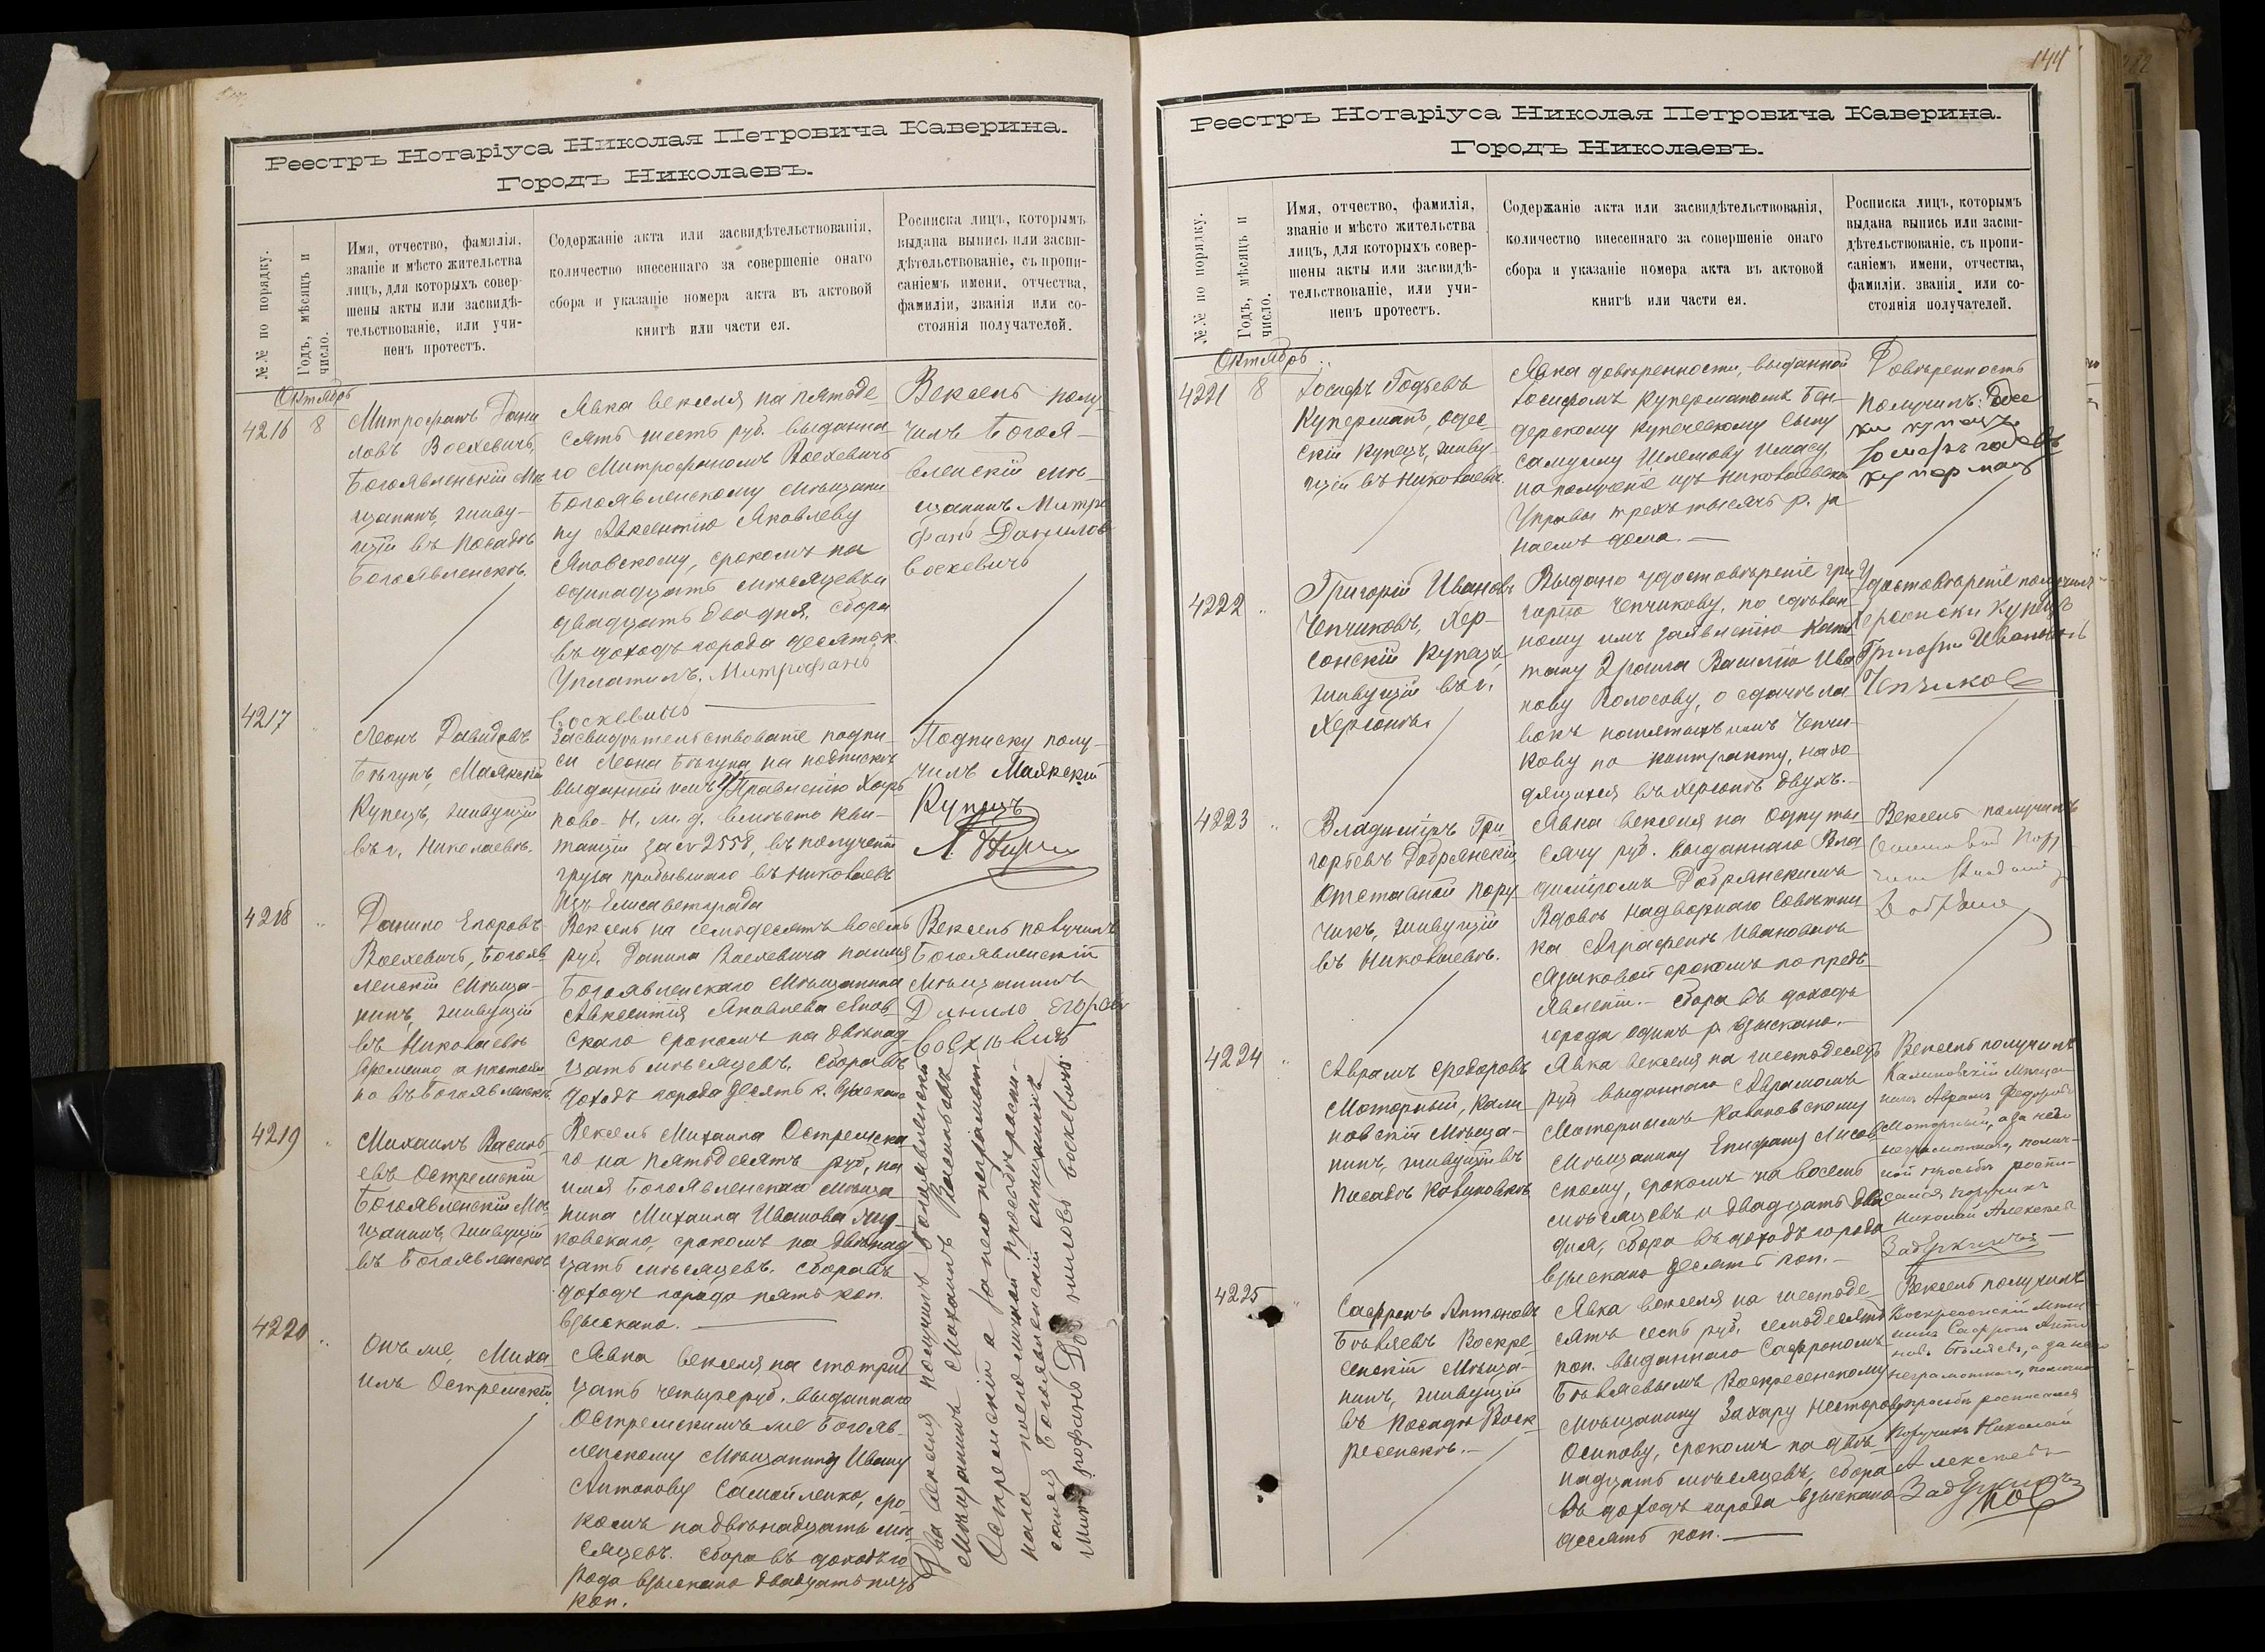 Реестръ Нотаріуса Николая Петровича Каверина.
Городъ Николаевъ.
№№ по порядку.
Годъ, мѣсяцъ и
число.
Имя, отчество, фамилія,
званіе и мѣсто жительства
лицъ, для которыхъ совер-
шены акты или засвидѣ-
тельствованіе, или учи-
ненъ протестъ.
Содержаніе акта или засвидѣтельствованія,
количество внесеннаго за совершеніе онаго
сбора и указаніе номера акта въ актовой
книгѣ или части ея.
Росписка лицъ, которымъ
выдана выпись или засви-
дѣтельствованіе, съ пропи-
саніемъ имени, отчества,
фамиліи, званія или со-
стоянія получателей.
Октябрь
4216
8
Митрофанъ Дани
ловъ Воехевичъ,
Богоявленскій Мѣ
щанинъ, живу-
щій въ Посадѣ
Богоявленскѣ.
Явка векселя на пятьде
сятъ шесть руб. выданна
го Митрофаномъ Воехевичъ
Богоявленскому Мѣщани
ну Авксентію Яковлеву
Яновскому, срокомъ на
одинадцать мѣсяцевъ и
двадцать два дня, сбора
въ доходъ города десять к
Уплатилъ. Митрофанъ
Вексель полу
чилъ Богоя-
вленскій мѣ-
щанинъ Митро
фанъ Данилов
4217
Леонъ Давидовъ
Бѣгунъ, Маякскій
Купецъ, живущій
въ г. Николаевѣ.
Засвидѣтельствованіе подпи-
си Леона Бѣгуна на подпискѣ
выданной имъ Правленію Харь
ково-Н. ж. д. вмѣсто кви-
танціи за № 2558, въ полученіи
груза прибывшаго въ Николаевъ
изъ Елисаветграда
Подписку полу-
чилъ Маякскій
Купецъ
4218
Данило Егоровъ
Воехевичъ, Богояв
ленскій Мѣща-
нинъ, живущій
въ Николаевѣ
временно, а постоян
но въ Богоявленскѣ
Вексель на семьдесятъ восемь
руб. Данила Воехевича на имя
Богоявленскаго Мѣщанина
Авксентія Яковлева Янов
скаго срокомъ на двѣнад
цать мѣсяцевъ. сбора въ
доходъ города десять к. взыскано
Вексель получилъ
Богоявленскій
Мѣщанинъ
Данило Егоров
4219
Михаилъ Василь
евъ Остремскій
Богоявленскій Мѣ
щанинъ, живущій
въ Богоявленскѣ
Вексель Михаила Остремска
го на пятьдесятъ руб, на
имя Богоявленскаго мѣща
нина Михаила Иванова
срокомъ на двѣнад
цать мѣсяцевъ. сбора въ
доходъ города пять коп.
взыскано.
4220
Онъ же, Миха
илъ Остремскій
Явка векселя на сто трид
цать четыре руб. выданнаго
Остремскимъ же Богояв-
ленскому Мѣщанину Ивану
Антонову Самойленко, сро
комъ на двѣнадцать мѣ
сяцевъ. сбора въ доходъ го
рода взыскано двадцать пять
коп.
Два векселя получилъ Богоявленскій
Мѣщанинъ Михаилъ Васильевъ
Остремскій а за него неграмот-
наго по его личной просьбѣ роспи-
сался Богоявленскій мѣщанинъ
Митрофанъ Даниловъ
144
Реестръ Нотаріуса Николая Петровича Каверина.
Городъ Николаевъ.
№№ по порядку.
Годъ, мѣсяцъ и
число.
Имя, отчество, фамилія,
званіе и мѣсто жительства
лицъ, для которыхъ совер-
шены акты или засвидѣ-
тельствованіе, или учи-
ненъ протестъ.
Содержаніе акта или засвидѣтельствованія,
количество внесеннаго за совершеніе онаго
сбора и указаніе номера акта въ актовой
книгѣ или части ея.
Росписка лицъ, которымъ
выдана выпись или засви-
дѣтельствованіе, съ пропи-
саніемъ имени, отчества,
фамиліи, званія или со-
стоянія получателей.
Октябрь
4221
8
Іосифъ Годьевъ
Куперманъ, Одес-
скій Купецъ, живу-
щій въ Николаевѣ
Явка довѣренности, выданной
Іосифомъ Куперманомъ Бен-
дерскому купеческому сыну
Самуилу
на полученіе изъ Николаевской
Управы трехъ тысячъ р. за
наемъ дома.
Довѣренность
получилъ: Одес
купецъ
Іосифъ
куперманъ
4222
Григорій Ивановъ
Чепчиковъ, Хер-
сонскій Купецъ,
живущій въ г.
Херсонѣ.
Выдано удостовѣреніе Гри
горію Чепчикову, по сдѣлан-
ному имъ заявленію
Василію Ива
нову Колосову, о сдачѣ ла
вокъ нанятыхъ имъ Чепчи-
кову по контракту, нахо
дящихся въ Херсонѣ двухъ.
Удостовѣреніе получилъ
Херсонски Купецъ
Григорій Ивановъ
Чепчиков
4223
Владиміръ Гри-
горьевъ Добрянскій
Отставной Пору
чикъ, живущій
въ Николаевѣ.
Явка векселя на одну ты
сячу руб. выданнаго Вла
диміромъ Добрянскимъ
Вдовѣ Надворнаго Совѣтни
ка Аграфенѣ Ивановнѣ
Языковой срокомъ по предъ
явленіи. сбора въ доходъ
города одинъ р. взыскано.
Вексель получилъ
4224
Аврамъ Ѳедоровъ
Моторный, Кали
новскій Мѣща-
нинъ, живущій въ
Посадѣ Калиновкѣ
Явка векселя на шестьдесятъ
руб выданнаго Аврамомъ
Моторнымъ Калиновскому
Мѣщанину Епифану Лисов
скому, срокомъ на восемь
мѣсяцевъ и двадцать два
дня, сбора въ доходъ города
взыскано десять коп.
Вексель получилъ
Калиновскій Мѣща-
нинъ Аврамъ Федоровъ
Моторный, а за него
неграмотнаго, по лич-
ной просьбѣ роспи-
сался Поручикъ
Николай Алексеевъ
4225
Сафронъ Антоновъ
Бѣляевъ Воскре-
сенскій Мѣща-
нинъ, живущій
въ Посадѣ Воск-
ресенскѣ.
Явка векселя на шестьде-
сятъ семь руб. семьдесятъ
коп. выданнаго Сафрономъ
Бѣляевымъ Воскресенскому
Мѣщанину Захару Несторову
Осипову, срокомъ на двѣ-
надцать мѣсяцевъ, сбора
въ доходъ города взыскано
десять коп.
Вексель получилъ
Воскресенскій Мѣща-
нинъ Сафронъ Анто
новъ Бѣляевъ, а за него
неграмотнаго, по личной
просьбѣ росписался
Поручикъ Николай
Алексеевъ